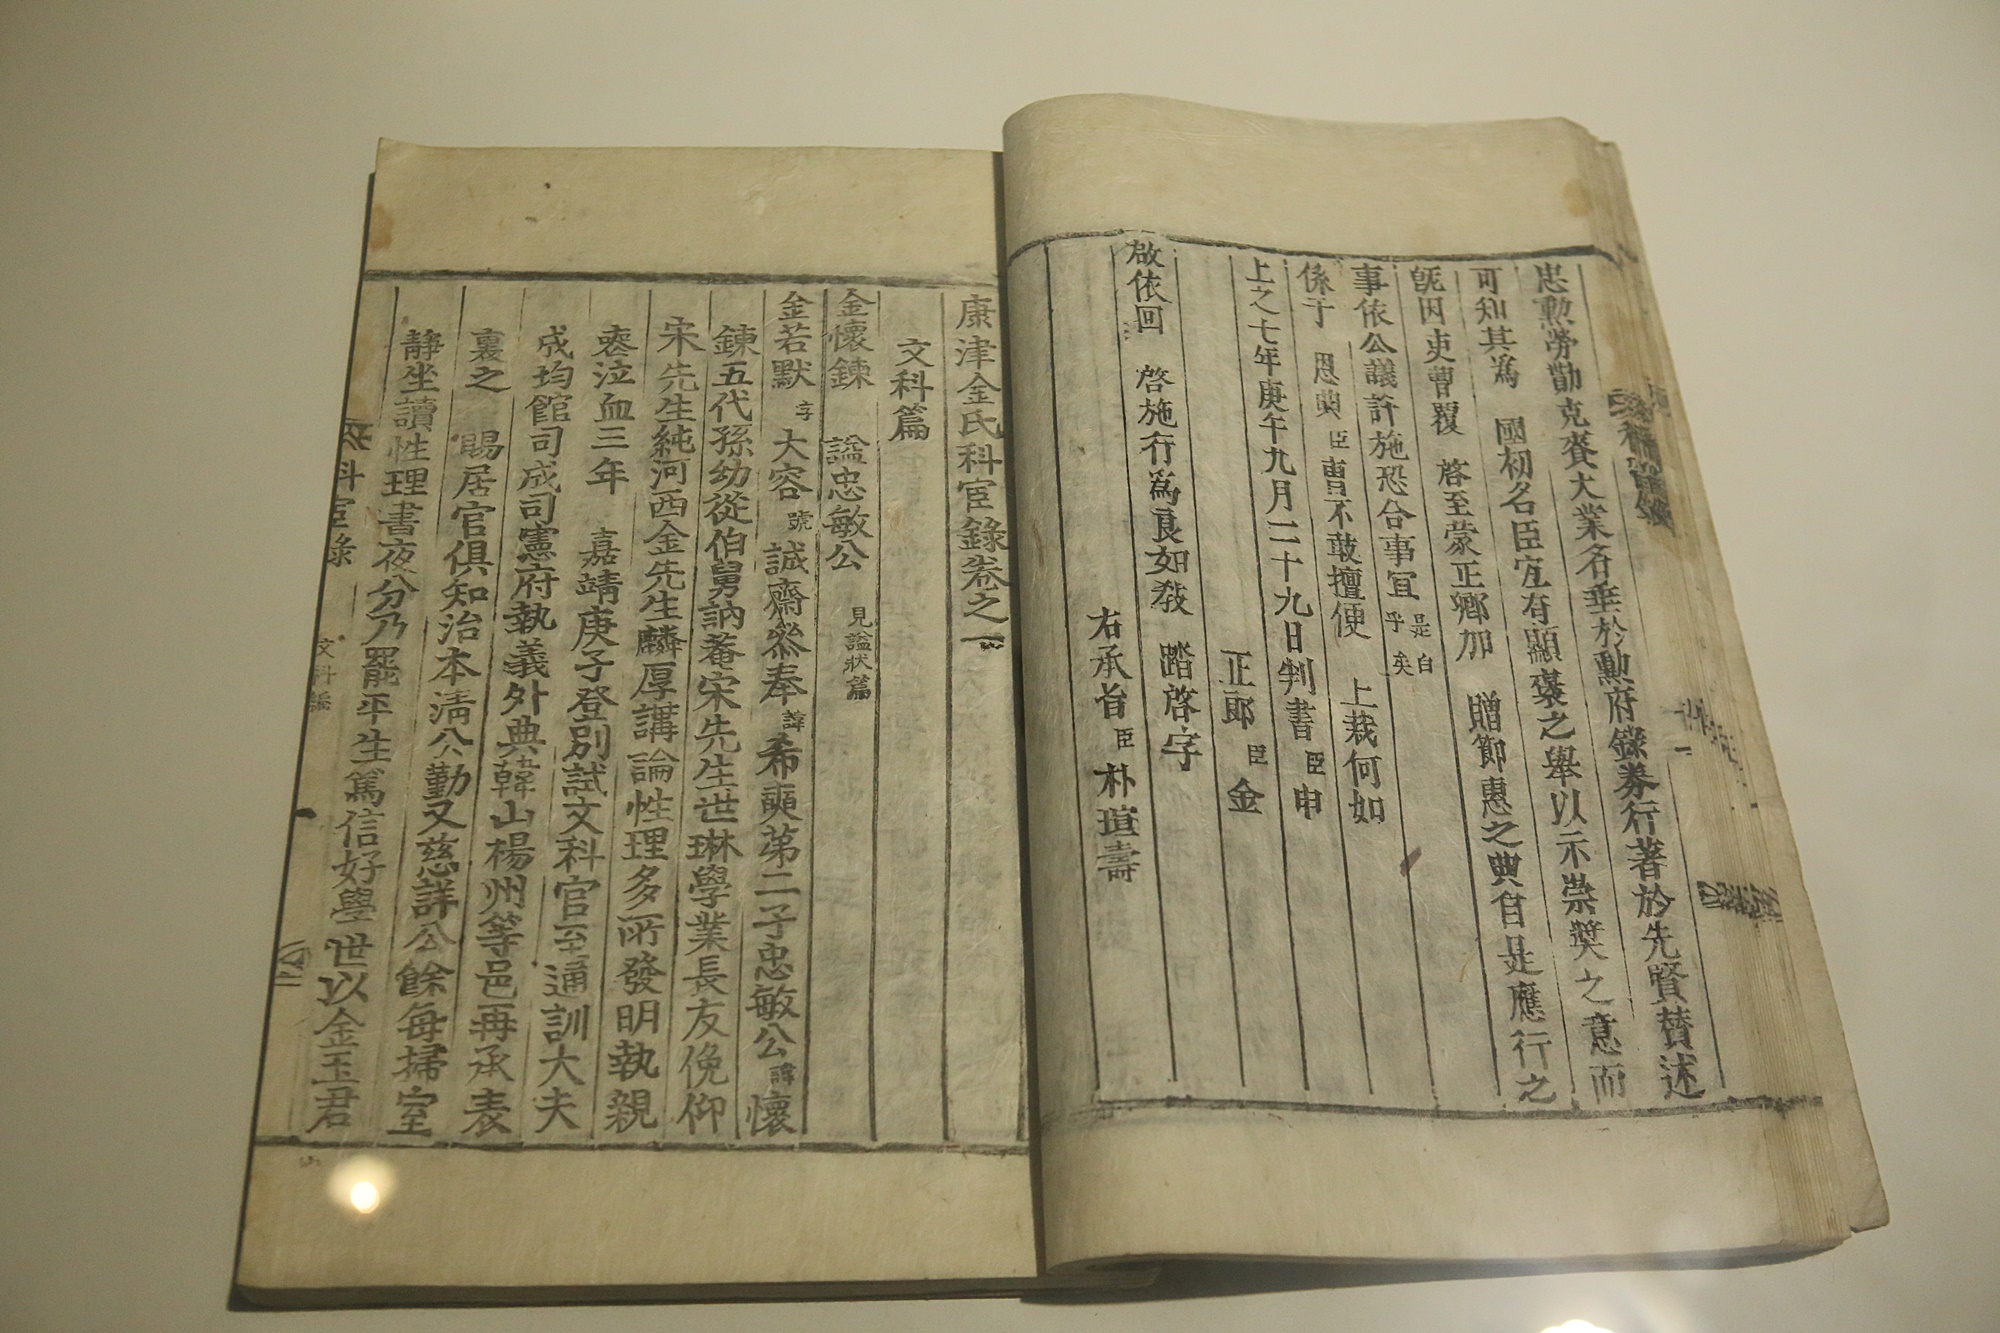 忠勳勞勩克賛大業名垂於勳府錄券行著於先賢賛述
可知其為 國初名臣宜有顯褒之舉以示崇奬之意而
旣因吏曹覆 啓至蒙正卿加 贈節惠之典自是應行之
事依公議許施恐合事冝 是白乎矣
係于 恩典 臣曹不敢擅便 上裁何如
上之七年庚午九月二十九日判書 臣 申
正郎 臣 金
啟依回 啓施行爲良如敎 踏啓字
右承旨 臣 朴瑄壽
康津金氏科宦錄卷之一
文科篇
金懷鍊 謚忠敏公 見謚狀篇
金若默 字大容 號誠齋叅奉 諱希奭第二子忠敏公 諱懷
鍊五代孫幼從伯舅訥菴宋先生世琳學業長友俛仰
宋先生純河西金先生麟厚講論性理多所發明執親
喪泣血三年 嘉靖庚子登別試文科官至通訓大夫
成均館司成司憲府執義外典韓山楊州等邑再承表
裏之 賜居官俱知治本淸公勤又慈詳公餘每掃室
靜坐讀性理書夜分乃罷平生篤信好學世以金玉君
科宦錄 文科編